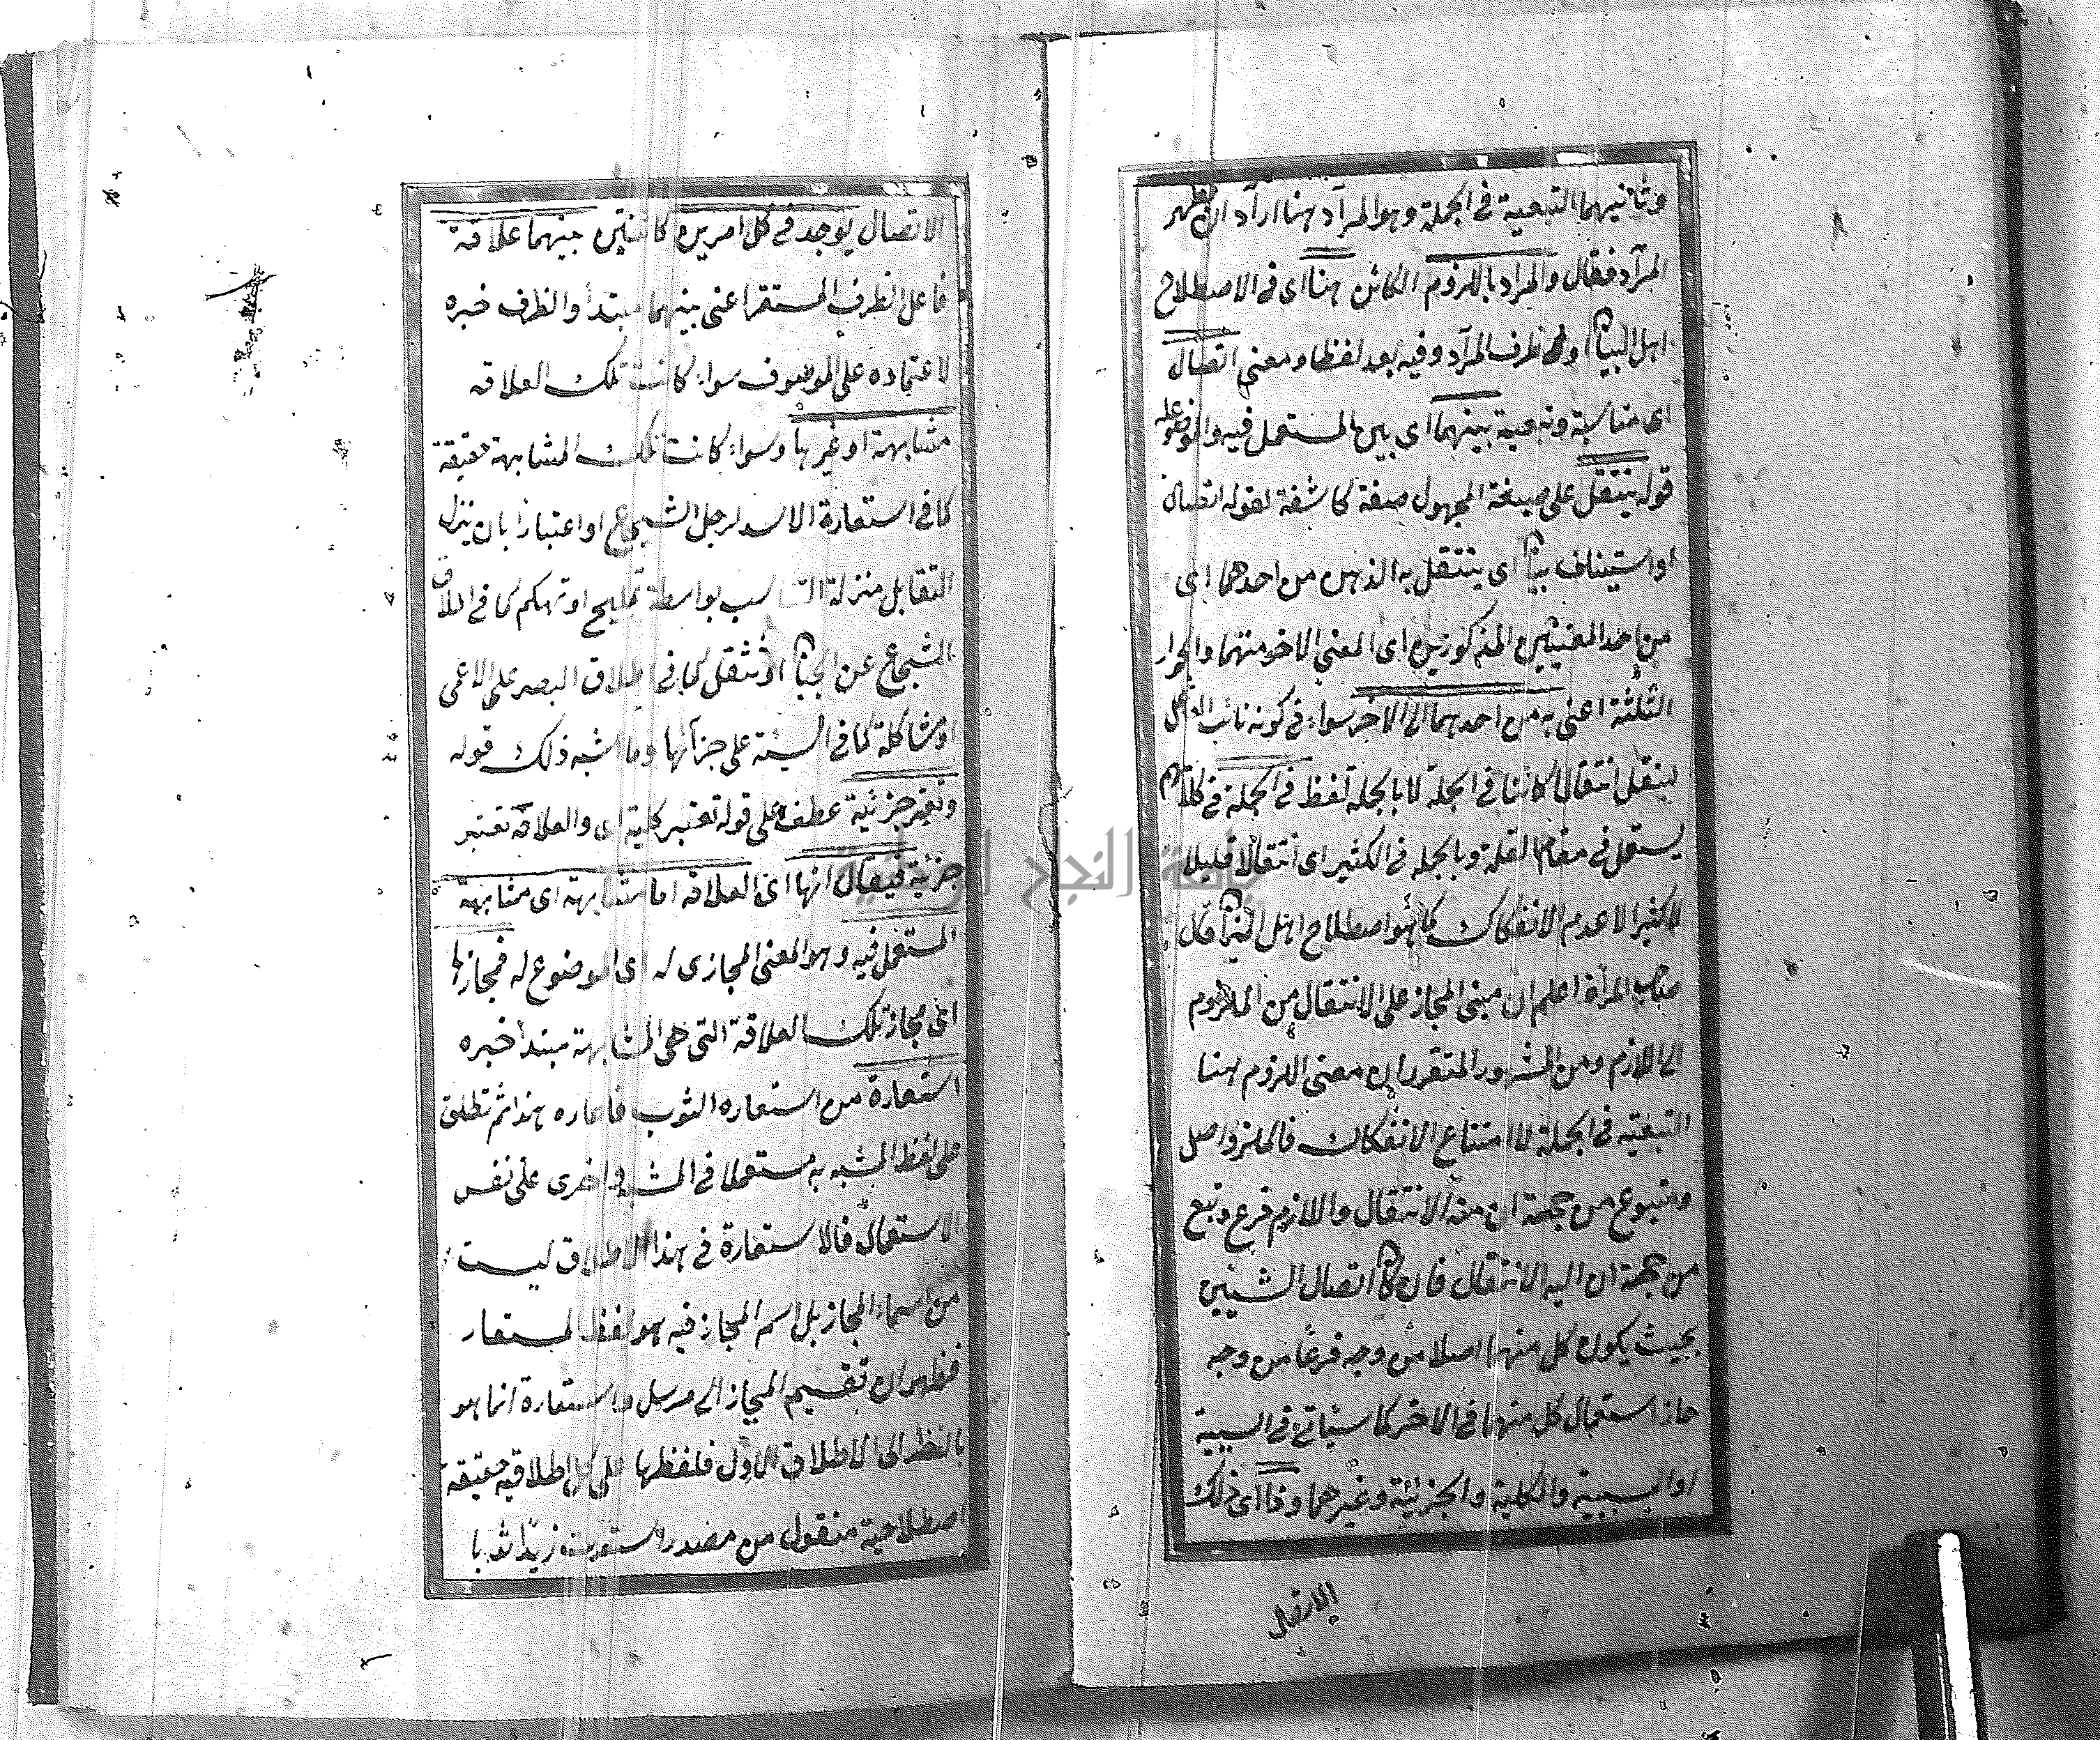 وثانيهما التبعية في الجملة وهو المرآد هنا ارآد ان يظهر
المرآد فقال والمراد باللزوم الكائن هنا اى في الاصطلاح
اهل البيا ظرف المرآد وفيه بعد لفظا ومعنى اتصال
اى مناسبة وتبعية بينهما اى بين المستعمل فيه والموضوع له
قوله ينتقل على صيغة المجهول صفة كاشفة لقوله اتصال
او استيناف بيا اى ينتقل به الذهن من احدهما اى
من احد المعنيين المذكورين اى المعنى الاخر منهما والجوار
الثلثة اعنى به من احدهما الى الاخر سواء في كونه نائب الفاعل
لينقل انتقالا كائنا في الجملة لا بالجملة لفظ في الجملة في
يستعمل في مقام القلة وبالجملة في الكثير اى انتقالا قليلا
لا كثيرا لا عدم الانفكاك كما هو اصطلاح اهل قال
صاحب المرأة اعلم ان مبنى المجاز على الانتقال من الملزوم
الى اللازم ومن المشهور المتقرر ان معنى اللزوم ههنا
التبعية في الجملة لا امتناع الانفكاك فالملزوم اصل
ومتبوع من جهة ان منه الانتقال واللازم فرع وتبع
من جهة ان اليه الانتقال فان كا اتصال الشيئين
بحيث يكون كل منهما اصلا من وجه فرعا من وجه
جاز استعمال كل منهما في الاخر كما سيأتي في السببية
او المسببية والكلية والجزئية وغيرهما وفا اى ذلك
الاتصال
الاتصال يوجد في كل امرين كائنين بينهما علاقة
فاعل الظرف المستقر اعنى بينهما مبتدأ والظرف خبره
لاعتماده على الموصوف سواء كانت تلك العلاقة
مشابهة او غيرها وسواء كانت تلك المشابهة حقيقة
كما في استعارة الاسد لرجل الشجاع او اعتبارا بان ينزل
التقابل منزلة التناسب بواسطة تمليح او تهكم كما في اطلاق
الشجاع عن الجبا كما في اطلاق البصير على الاعمى
او مشاكلة كما في السيئة على جزآئها وما اشبه ذلك قوله
وتعتبر جزئية عطف على قوله تعتبر كلية اى والعلاقة تعتبر
جزئية فيقال انها اى العلاقة اما مشابهة اى مشابهة
المستعمل فيه وهو المعنى المجازى له اى الموضوع له فمجازها
اى مجاز تلك العلاقة التى هى المشابهة مبتدأ خبره
استعارة من استعاره الثوب فاعاره هذا ثم تطلق
على لفظ المشبه به مستعملا في المشبه واخرى على نفس
الاستعمال فالاستعارة في هذا الاطلاق ليست
من اسماء المجاز بل اسم المجاز فيه هو لفظ المستعار
فظهر ان تقسيم المجاز الى مرسل واستعارة انما هو
بالنظر الى الاطلاق الاول فلفظها على كل اطلاقيه حقيقة
اصطلاحية منقول من مصدر استعرت زيدا ثوبا
جامعة النجاح الوطنية